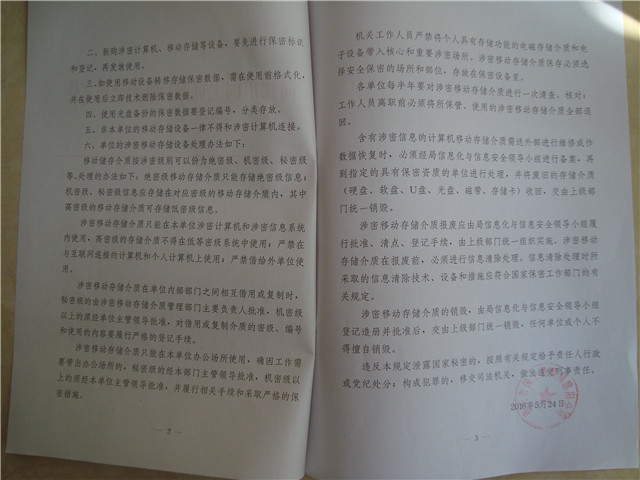 二、新购涉密计算机、移动存储等设备，要先进行保密标识
和登记，再发放使用。
三、如使用移动设备转移存储保密数据，需在使用前格式化，
并在使用后立即技术删除保密数据。
四、使用光盘备份的保密数据要登记编号，分类存放。
五、非本单位的移动存储设备一律不得和涉密计算机连接。
六、单位的移动存储设备处理办法如下：
移动储存介质按涉密级别可以分为绝密级、机密级、秘密级
等，处理的办法如下：绝密级移动存储介质只能存储绝密级信息；
机密级、秘密级信息应存储在对应密级的移动存储介质内，其中
高密级的移动存储介质可存储低密级信息。
涉密移动存储介质只能在本单位涉密计算机和涉密信息系统
内使用，高密级的存储介质不得在低等密级系统中使用；严禁在
与互联网连接的计算机和个人计算机上使用；严禁借给外单位使
用。
涉密移动存储介质在单位内部部门之间相互借用或复制时，
秘密级的由涉密移动存储介质管理部门主要负责人批准，机密级
以上的须经单位主管领导批准，对借用或复制介质的密级、编号
和使用的内容要履行严格的登记手续。
涉密移动存储介质只能在本单位办公场所使用，确因工作需
要带出办公场所的，秘密级的经本部门主管领导批准，机密级以
上的须经本单位主管领导批准，并履行相关手续和采取严格的保
密措施。
— 2 —
机关工作人员严禁将个人具有存储功能的电磁存储介质和电
子设备带入核心和重要涉密场所、涉密移动存储介质保存必须选
择安全保密的场所和部位，存放在保密设备里。
各单位每半年要对涉密移动存储介质进行一次清查、核对；
工作人员离职前必须将所保管、使用的涉密移动存储介质全部退
回。
含有涉密信息的计算机移动存储介质需送外部进行维修或作
数据恢复时，必须经局信息化与信息安全领导小组进行备案，再
到指定的具有保密资质的单位进行处理，并将废旧的存储介质
（硬盘、软盘、U盘、光盘、磁带、存储卡）收回，交由上级部
门统一销毁。
涉密移动存储介质报废应由局信息化与信息安全领导小组履
行批准、清点、登记手续，由上级部门统一组织实施。涉密移动
存储介质在报废前，必须进行信息清除处理。信息清除处理时所
采取的信息清除技术、设备和措施应符合国家保密工作部门的有
关规定。
涉密移动存储介质的销毁，由局信息化与信息安全领导小组
登记造册并批准后，交由上级部门统一销毁，任何单位或个人不
得擅自销毁。
违反本规定泄露国家秘密的，按照有关规定给予责任人行政
或党纪处分；构成犯罪的，移交司法机关，依法追究刑事责任。
2016年5月24日
— 3 —